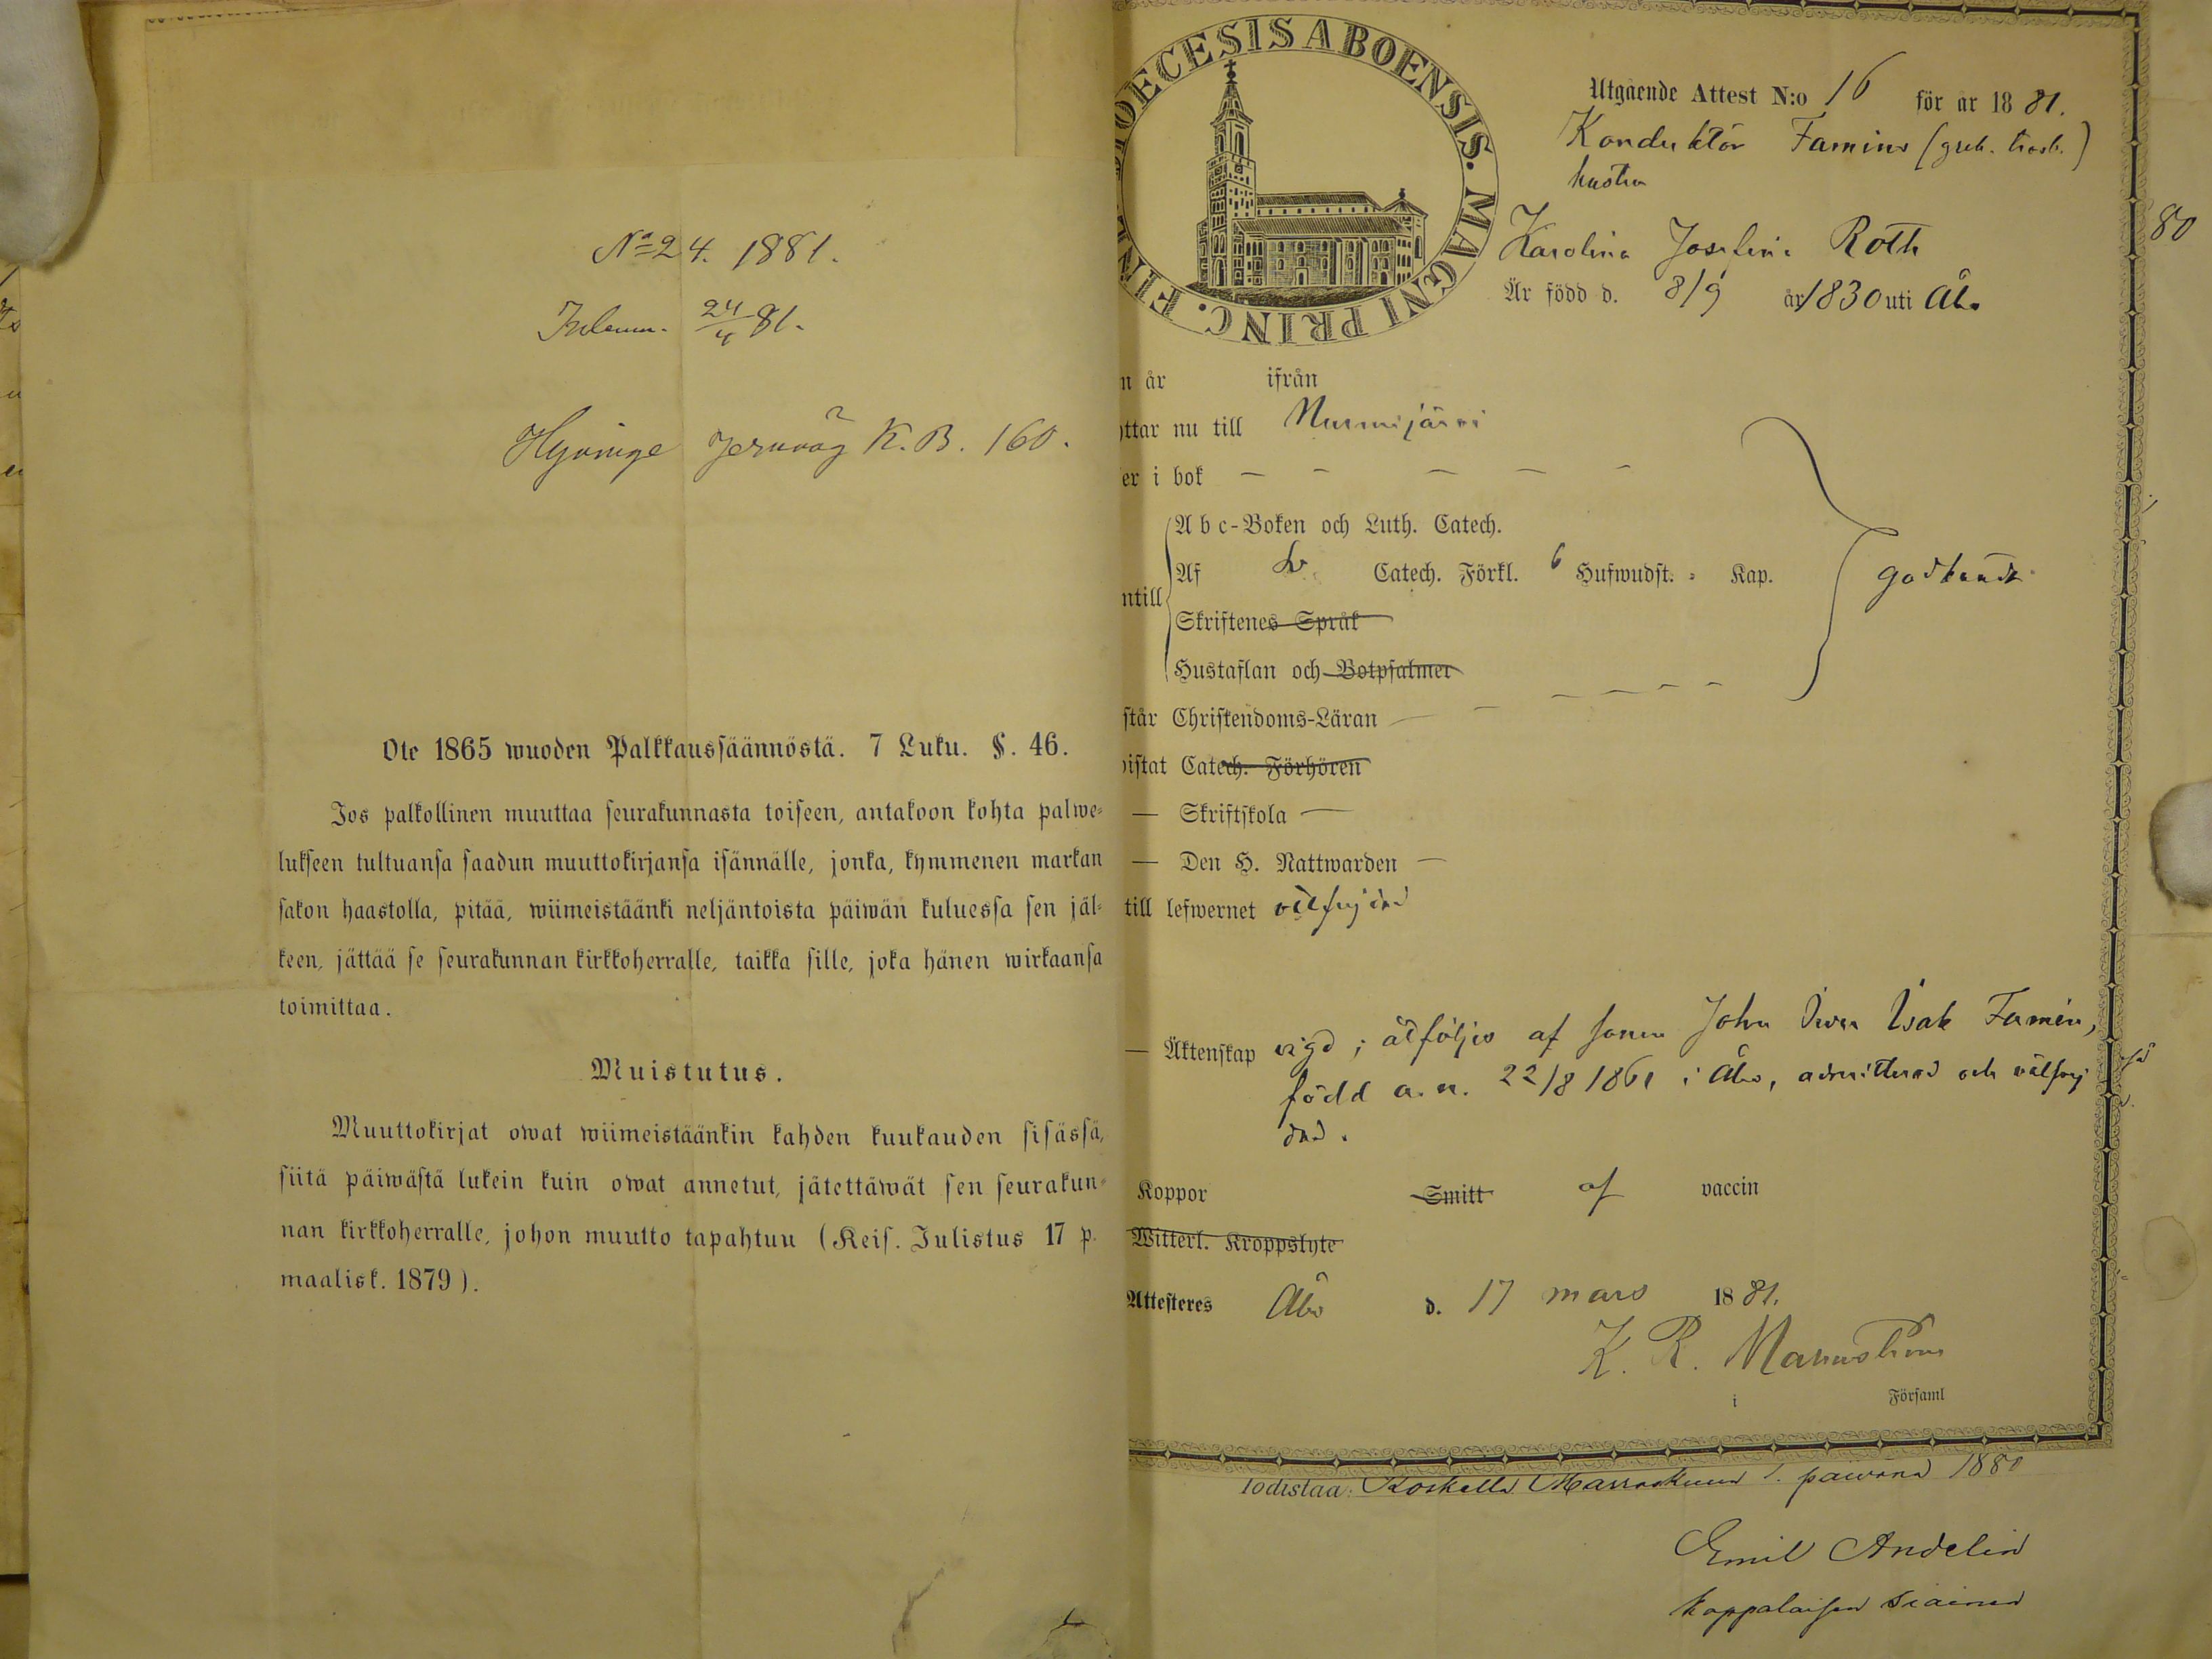 No 24. 1881.
Inlemn. 24/4 81.
Hyvinge Jernväg K. B. 160.
Ote 1865 wuoden Palkkaussäännöstä. 7 Luku. §. 46.
Jos palkollinen muuttaa seurakunnasta toiseen, antakoon kohta palwe-
lukseen tultuansa saadun muuttokirjansa isännälle, jonka, kymmenen markan
sakon haastolla, pitää, wiimeistäänki neljäntoista päiwän kuluessa sen jäl-
keen, jättää se seurakunnan kirkkoherralle, taikka sille, joka hänen wirkaansa
toimittaa.
Muistutus.
Muuttokirjat owat wiimeistäänkin kahden kuukauden sisässä,
siitä päiwästä lukein kuin owat annetut, jätettäwät sen seurakun-
nan kirkkoherralle, johon muutto tapahtuu (Keis. Julistus 17 p.
maalisk. 1879).
DIOECESIS ABOENSIS. MAGNI PRINC. FINL.
Utgående Attest N:o 16 för år 1881.
Konduktör Famins (grek. trosb.)
hustru
Karolina Josefina Roth
80
Är född d. 8/9 år 1830 uti Åbo
n år ifrån
ttar nu till Nurmijärvi
er i bok
Abc-Boken och Luth. Catech.
Af Catech. Förkl. 6 Hufwudst. Kap.
godkändt
ntill
Skriftenes Språk
Hustaflan och Botpsalmer
står Christendoms-Läran
istat Catech. Förhören
— Skriftskola —
— Den H. Nattwarden —
till lefwernet välfrejdad
— Äktenskap vigd; åtföljes af sonen John Isak Famin,
född a. n. 22/8 1861 i Åbo, admitterad och välfrej
dad.
Koppor Smitt af vaccin
Witterl. Kroppslyte
Attesteres Åbo d. 17 mars 1881.
K. R. Mannström
i Församl
Todistaa: Koskella Marraskuun 1. päivänä 1880
Emil Andelin
kappalaisen siainen